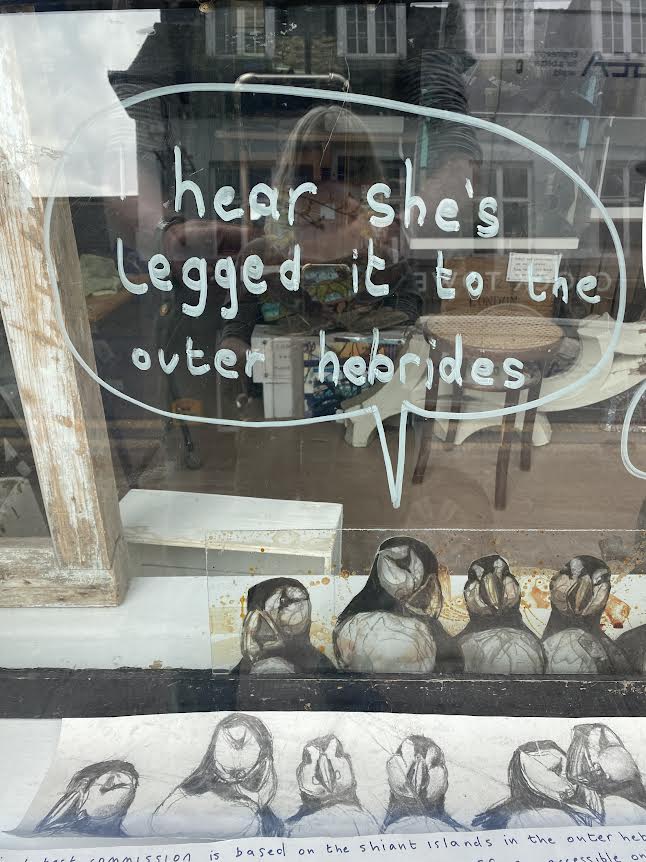 I hear she's
legged it to the
outer hebrides
commission is based on the shiant islands in the outer heb